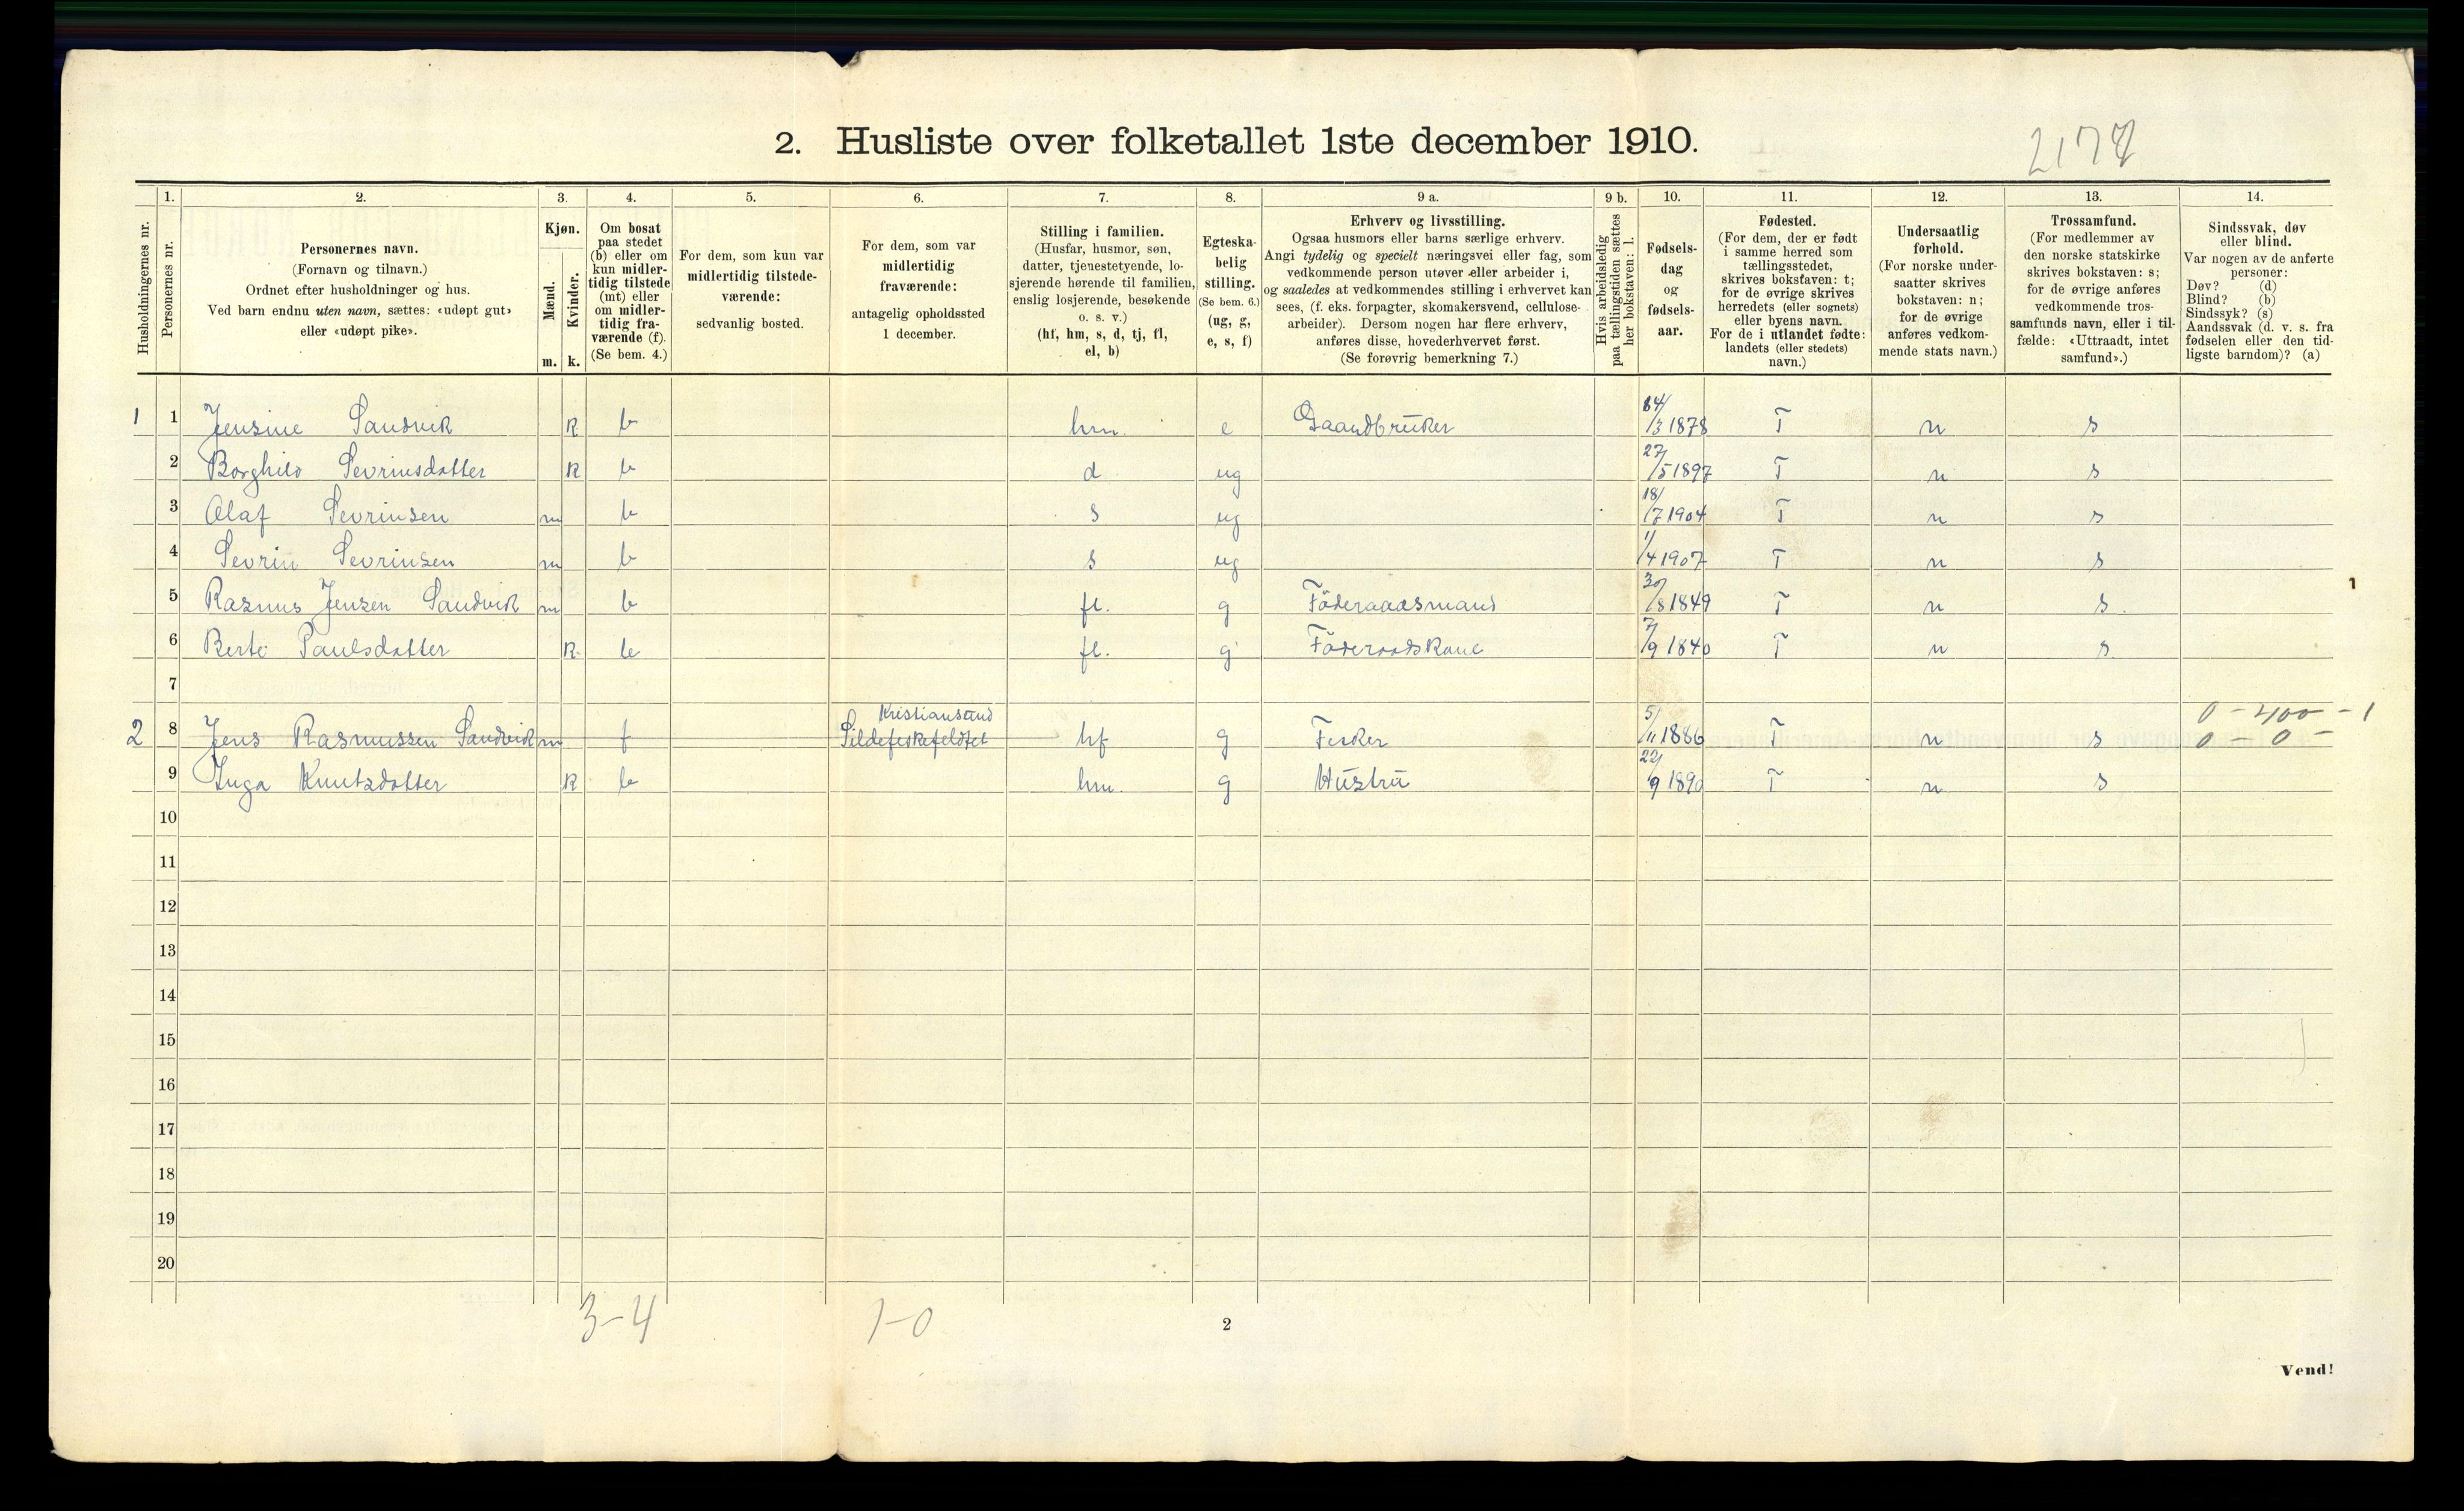 2. Husliste over folketallet 1ste december 1910.
2177
Husholdningernes nr.
1.
Personernes nr.
2.
Personernes navn.
(Fornavn og tilnavn.)
Ordnet efter husholdninger og hus.
Ved barn endnu uten navn, sættes: «udøpt gut»
eller «udøpt pike».
3.
Kjøn.
Mænd.
Kvinder.
m. k.
4.
Om bosat
paa stedet
(b) eller om
kun midler-
tidig tilstede
(mt) eller
om midler-
tidig fra-
værende (f).
(Se bem. 4.)
5.
For dem, som kun var
midlertidig tilstede-
værende:
sedvanlig bosted.
6.
For dem, som var
midlertidig
fraværende:
antagelig opholdssted
1 december.
7.
Stilling i familien.
(Husfar, husmor, søn,
datter, tjenestetyende, lo-
sjerende hørende til familien,
enslig losjerende, besøkende
o. s. v.)
(hf, hm, s, d, tj, fl,
el, b)
8.
Egteska-
belig
stilling.
(Se bem. 6.)
(ug, g,
e, s, f)
9 a.
Erhverv og livsstilling.
Ogsaa husmors eller barns særlige erhverv.
Angi tydelig og specielt næringsvei eller fag, som
vedkommende person utøver eller arbeider i,
og saaledes at vedkommendes stilling i erhvervet kan
sees, (f. eks. forpagter, skomakersvend, cellulose-
arbeider). Dersom nogen har flere erhverv,
anføres disse, hovederhvervet først.
(Se forøvrig bemerkning 7.)
9 b.
Hvis arbeidsledig
paa tællingstiden sættes
her bokstaven: l.
10.
Fødsels-
dag
og
fødsels-
aar.
11.
Fødested.
(For dem, der er født
i samme herred som
tællingsstedet,
skrives bokstaven: t;
for de øvrige skrives
herredets (eller sognets)
eller byens navn.
For de i utlandet fødte:
landets (eller stedets)
navn.)
12.
Undersaatlig
forhold.
(For norske under-
saatter skrives
bokstaven: n;
for de øvrige
anføres vedkom-
mende stats navn.)
13.
Trossamfund.
(For medlemmer av
den norske statskirke
skrives bokstaven: s;
for de øvrige anføres
vedkommende tros-
samfunds navn, eller i til-
fælde: «Uttraadt, intet
samfund».)
14.
Sindssvak, døv
eller blind.
Var nogen av de anførte
personer:
Døv? (d)
Blind? (b)
Sindssyk? (s)
Aandssvak (d. v. s. fra
fødselen eller den tid-
ligste barndom)? (a)
1 1 Jensine Sandvik K b hm. e Gaardbruker /3 1878 T n s
2 Borghild Sevrinsdatter K b d ug 27/5 1897 T n s
3 Olaf Sevrinsen m b s ug 18/7 1904 T n s
4 Sevrin Sevrinsen m b s ug 1/4 1907 T n s
5 Rasmus Jensen Sandvik m b fl. g Föderaadsmand 30/8 1849 T n s.
6 Berte Paulsdatter K. b fl. g Föderaadskone 7/9 1840 T n s.
7
Kristiansund 0 - 400 - 1
2 8 Jens Rasmussen Sandvik m f Sildefeskefeldtet hf g Fesker 5/11 1886 T n s 0 - 0 -
9 Inga Knutsdatter K b hm. g Hustru 22/9 1890 T n s
10
11
12
13
14
15
16
17
18
19
20
3-4 1-0
2
Vend!
1